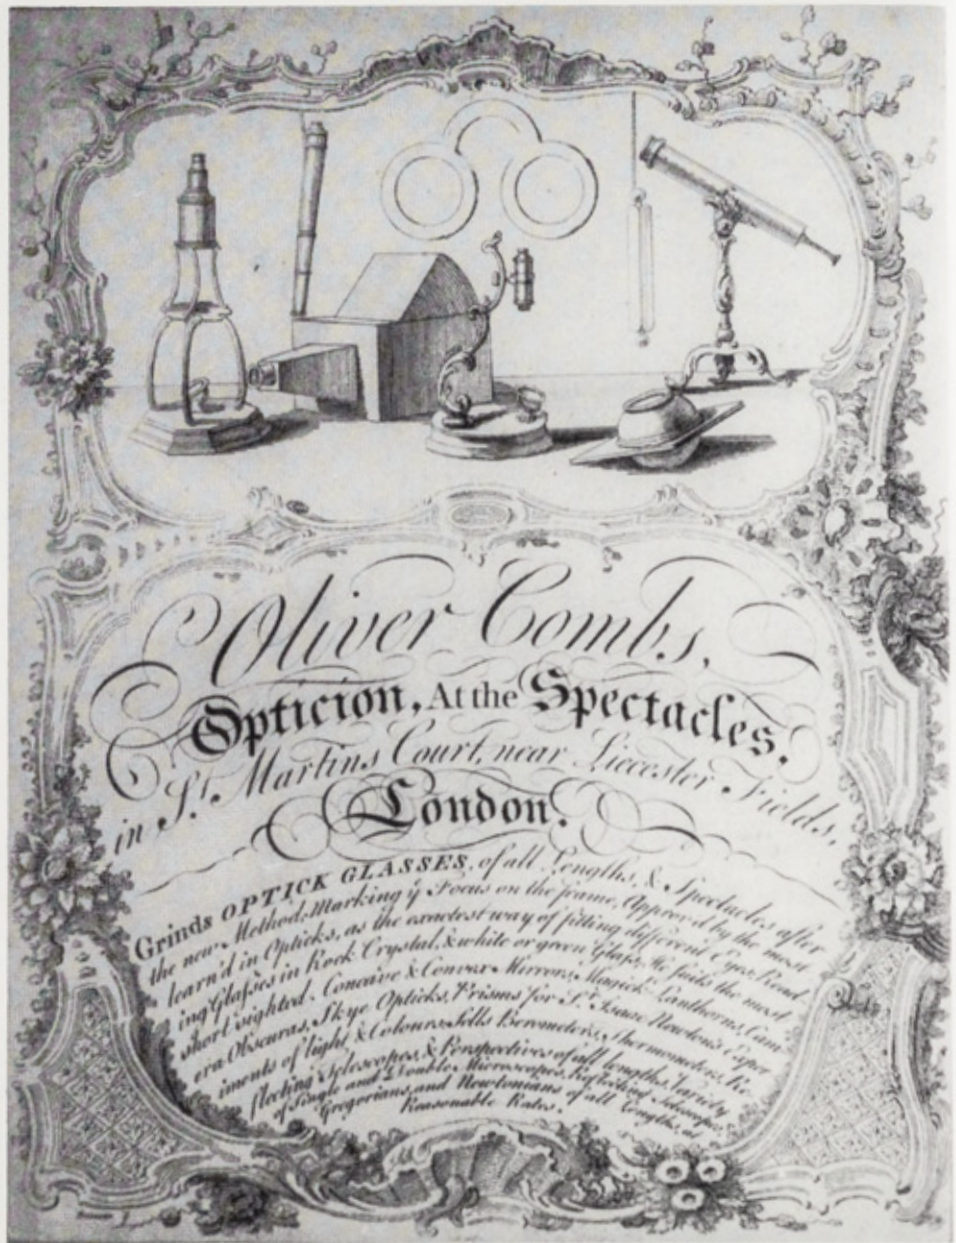 Oliver Combs,
Opticion, At the Spectacles,
in St. Martins Court, near Liecester Fields,
London.
Grinds OPTICK GLASSES, of all Lengths, & Spectacles after
the new Method; Marking ye Focus on the frame, Approv'd by the most
learn'd in Opticks, as the exactest way of fitting different Eyes. Read
ing Glasses in Rock Crystal, & white or green Glass. He suits the most
short sighted. Concave & Convex Mirrors, Magick Lanthorns, Cam
era Obscuras, Skye Opticks, Prisms for Sr. Isaac Newton's Exper
iments of light & Colours. Sells Barometers, Thermometers, Re
flecting Telescopes, & Perspectives of all lengths, Variety
of Single and Double Microscopes, Reflecting Telescopes,
Gregorians, and Newtonians of all Lengths, at
Reasonable Rates.